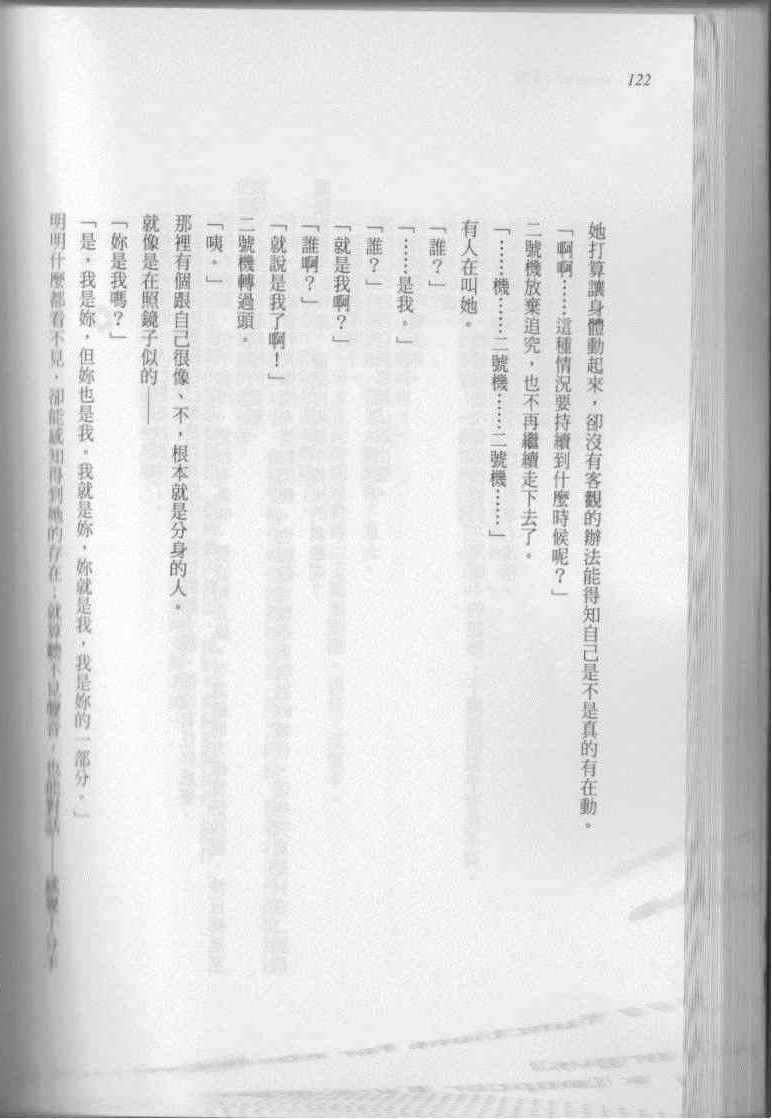 122
她打算讓身體動起來，卻沒有客觀的辦法能得知自己是不是真的有在動。
「啊啊……這種情況要持續到什麼時候呢？」
二號機放棄追究，也不再繼續走下去了。
「……機……二號機……二號機……」
有人在叫她。
「誰？」
「……是我。」
「誰？」
「就是我啊？」
「誰啊？」
「就說是我了啊！」
二號機轉過頭。
「咦。」
那裡有個跟自己很像、不，根本就是分身的人。
就像是在照鏡子似的——
「妳是我嗎？」
「是，我是妳，但妳也是我。我就是妳，妳就是我，我是妳的一部分。」
明明什麼都看不見，卻能感知得到她的存在；就算聽不見聲音，也能對話——